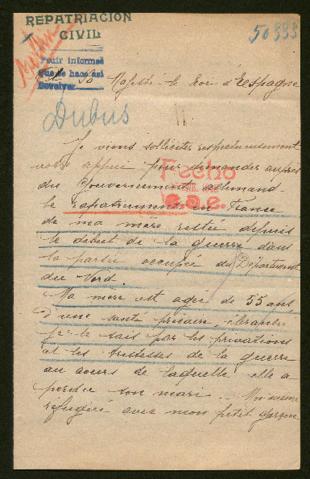 REPATRIACION
CIVIL
50993
Pedir informes
que se hace así
Devolver
Sa Majesté le Roi d'Espagne
Dubus
Je viens solliciter respectueusement
votre appui pour demander auprès
du Gouvernement allemand
Fecho
le rapatriement en France
de ma mère restée depuis
le début de la guerre dans
la partie occupée du Département
du Nord.
Ma mère est agée de 55 ans,
d'une santé précaire, ébranlée
je le sais par les privations
et les tristesses de la guerre
au cours de laquelle elle a
perdu son mari. Moi-même
réfugiée avec mon petit garçon